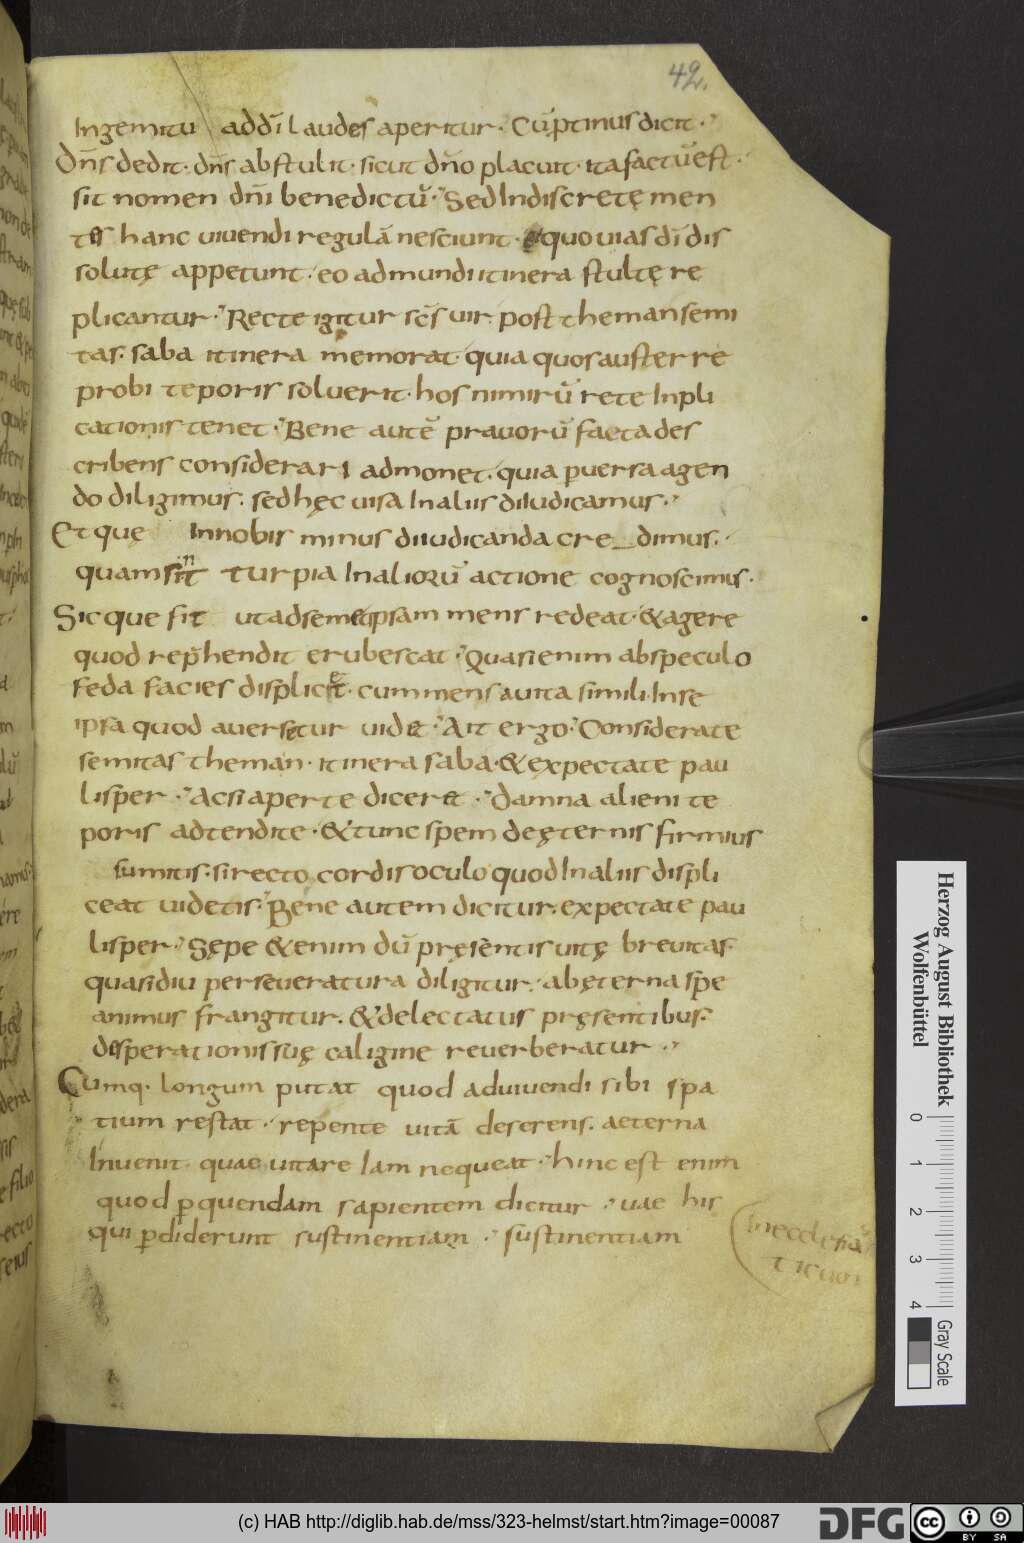 42.
Ingemitu addi̅ laudes aperitur. Cu̅ptinus dicit.
Dn̅s dedit. dn̅s abstulit. sicut dn̅o placuit. ita factu̅ est.
sit nomen dn̅i benedictu̅. Sed Indiscretę men
tes hanc vivendi regula̅ nesciunt. & quo vias di̅ dis
solutę appetunt. eo ad mundi itinera stultę re
plicantur. Recte igitur sc̅s vir. post theman semi
tas. saba itinera memorat. quia quos auster re
probi teporis solverit. hos nimiru̅ rete Inpli
cationis tenet. Bene aute̅ pravoru̅ facta des
cribens considerari admonet. quia p̲versa agen
do diligimus. sed hęc visa In aliis diiudicamus.
Et que In nobis minus diiudicanda cre_dimus.
quam sint turpia In alioru̅ actione cognoscimus.
Sicque fit ut ad semetipsam mens redeat. & agere
quod rep̅hendit erubescat. Quasi enim ab speculo
feda facies displicet. cum mens a vita simili. In se
ipsa quod aversetur videt. Ait ergo. Considerate
semitas theman. itinera saba. & expectate pau
lisper. Ac si aperte diceret. damna alieni te
poris adtendite. & tunc spem de ęternis firmius
sumitis. si recto cordis oculo quod In aliis displi
ceat videtis. Bene autem dicitur. expectate pau
lisper. Sępe & enim du̅ pręsentis vitę brevitas.
quasi diu perseveratura diligitur. ab ęterna spe
animus frangitur. & delectatus pręsentibus.
desperationis suę caligine reverberatur.
Cumq. longum putat quod ad vivendi sibi spa
tium restat. repente vita̅ deserens. aeterna
Invenit quae vitare Iam nequeat. hinc est enim
quod p̲ quendam sapientem dicitur. vae his
qui p̲diderunt sustinentiam. sustinentiam
In ecclesias
ticum
Herzog August Bibliothek
Wolfenbüttel
0 1 2 3 4
Gray Scale
(c) HAB http://diglib.hab.de/mss/323-helmst/start.htm?image=00087
DFG
cc BY SA